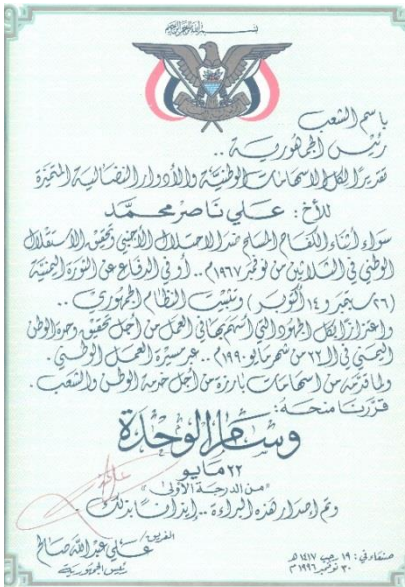 بسم الله الرحمن الرحيم
باسم الشعب
رئيس الجمهورية ..
تقديرًا لكل الاسهامات الوطنية والأدوار النضالية المتميزة
للأخ : علي ناصر محمد
سواء أثناء الكفاح المسلح ضد الاحتلال الأجنبي وتحقيق الاستقلال
الوطني في الثلاثين من نوفمبر ١٩٦٧م .. أو في الدفاع عن الثورة اليمنية
(٢٦ سبتمبر و ١٤ أكتوبر) وتثبيت النظام الجمهوري ..
واعتزازًا بكل الجهود التي أسهم بها في العمل من أجل تحقيق وحدة الوطن
اليمني في الـ ٢٢ من شهر مايو ١٩٩٠م .. عبر مسيرة العمل الوطني .
ولما قدمه من اسهامات بارزة من أجل خدمة الوطن والشعب .
قررنا منحه :
وسام الوحدة
٢٢ مايو
"من الدرجة الأولى"
وتم إصدار هذه البراءة .. إيذانًا بذلك .
الفريق /
علي عبدالله صالح
رئيس الجمهورية
صنعاء في : ١٩ رجب ١٤١٧هـ
٣٠ نوفمبر ١٩٩٦م